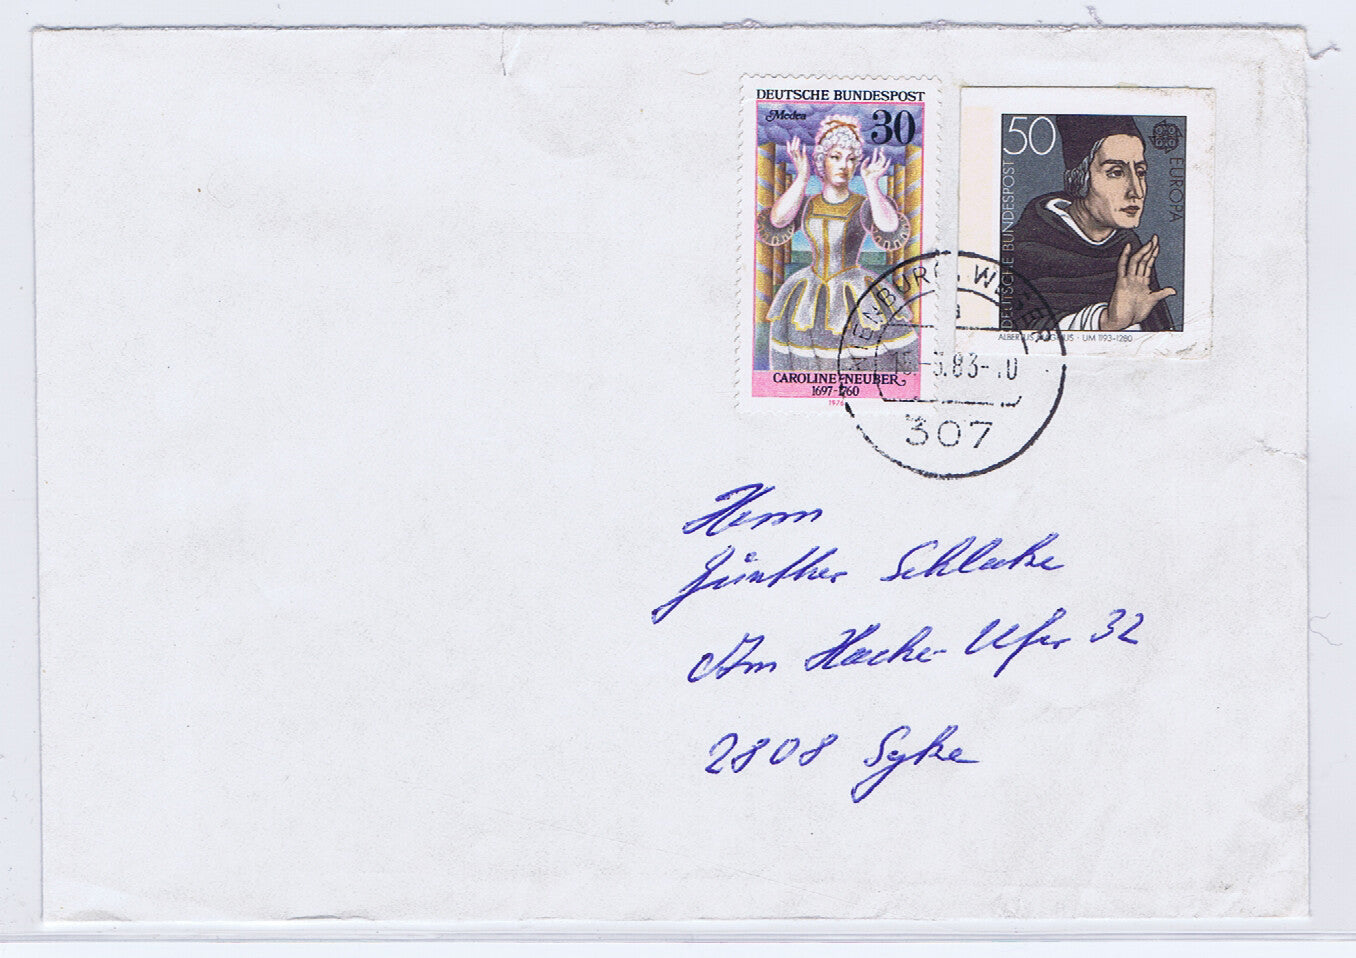 DEUTSCHE BUNDESPOST
Medea
30
CAROLINE NEUBER
1697-1760
1976
50
DEUTSCHE BUNDESPOST
EUROPA
ALBERTUS MAGNUS · UM 1193-1280
NIENBURG, WESER
a
.83-
307
Herrn
Günther Schlake
Am Hache-Ufer 32
2808 Syke